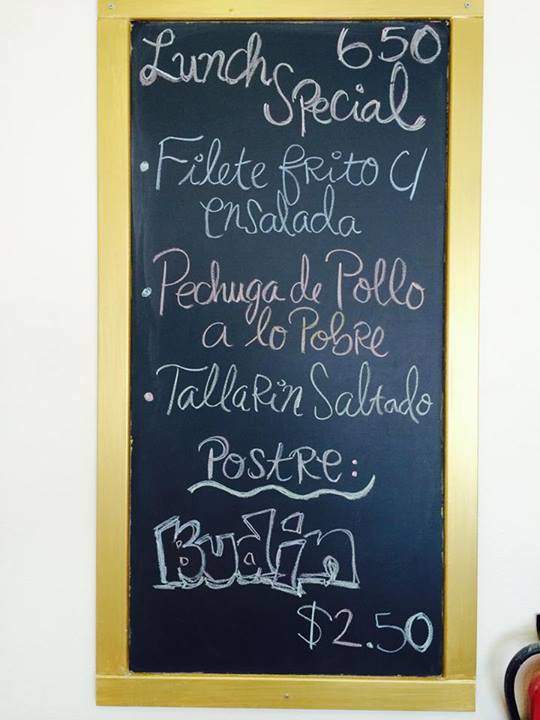 Lunch 650
Special
• Filete frito c/
ensalada
• Pechuga de Pollo
a lo Pobre
• Tallarin Saltado
Postre:
Budin
$2.50